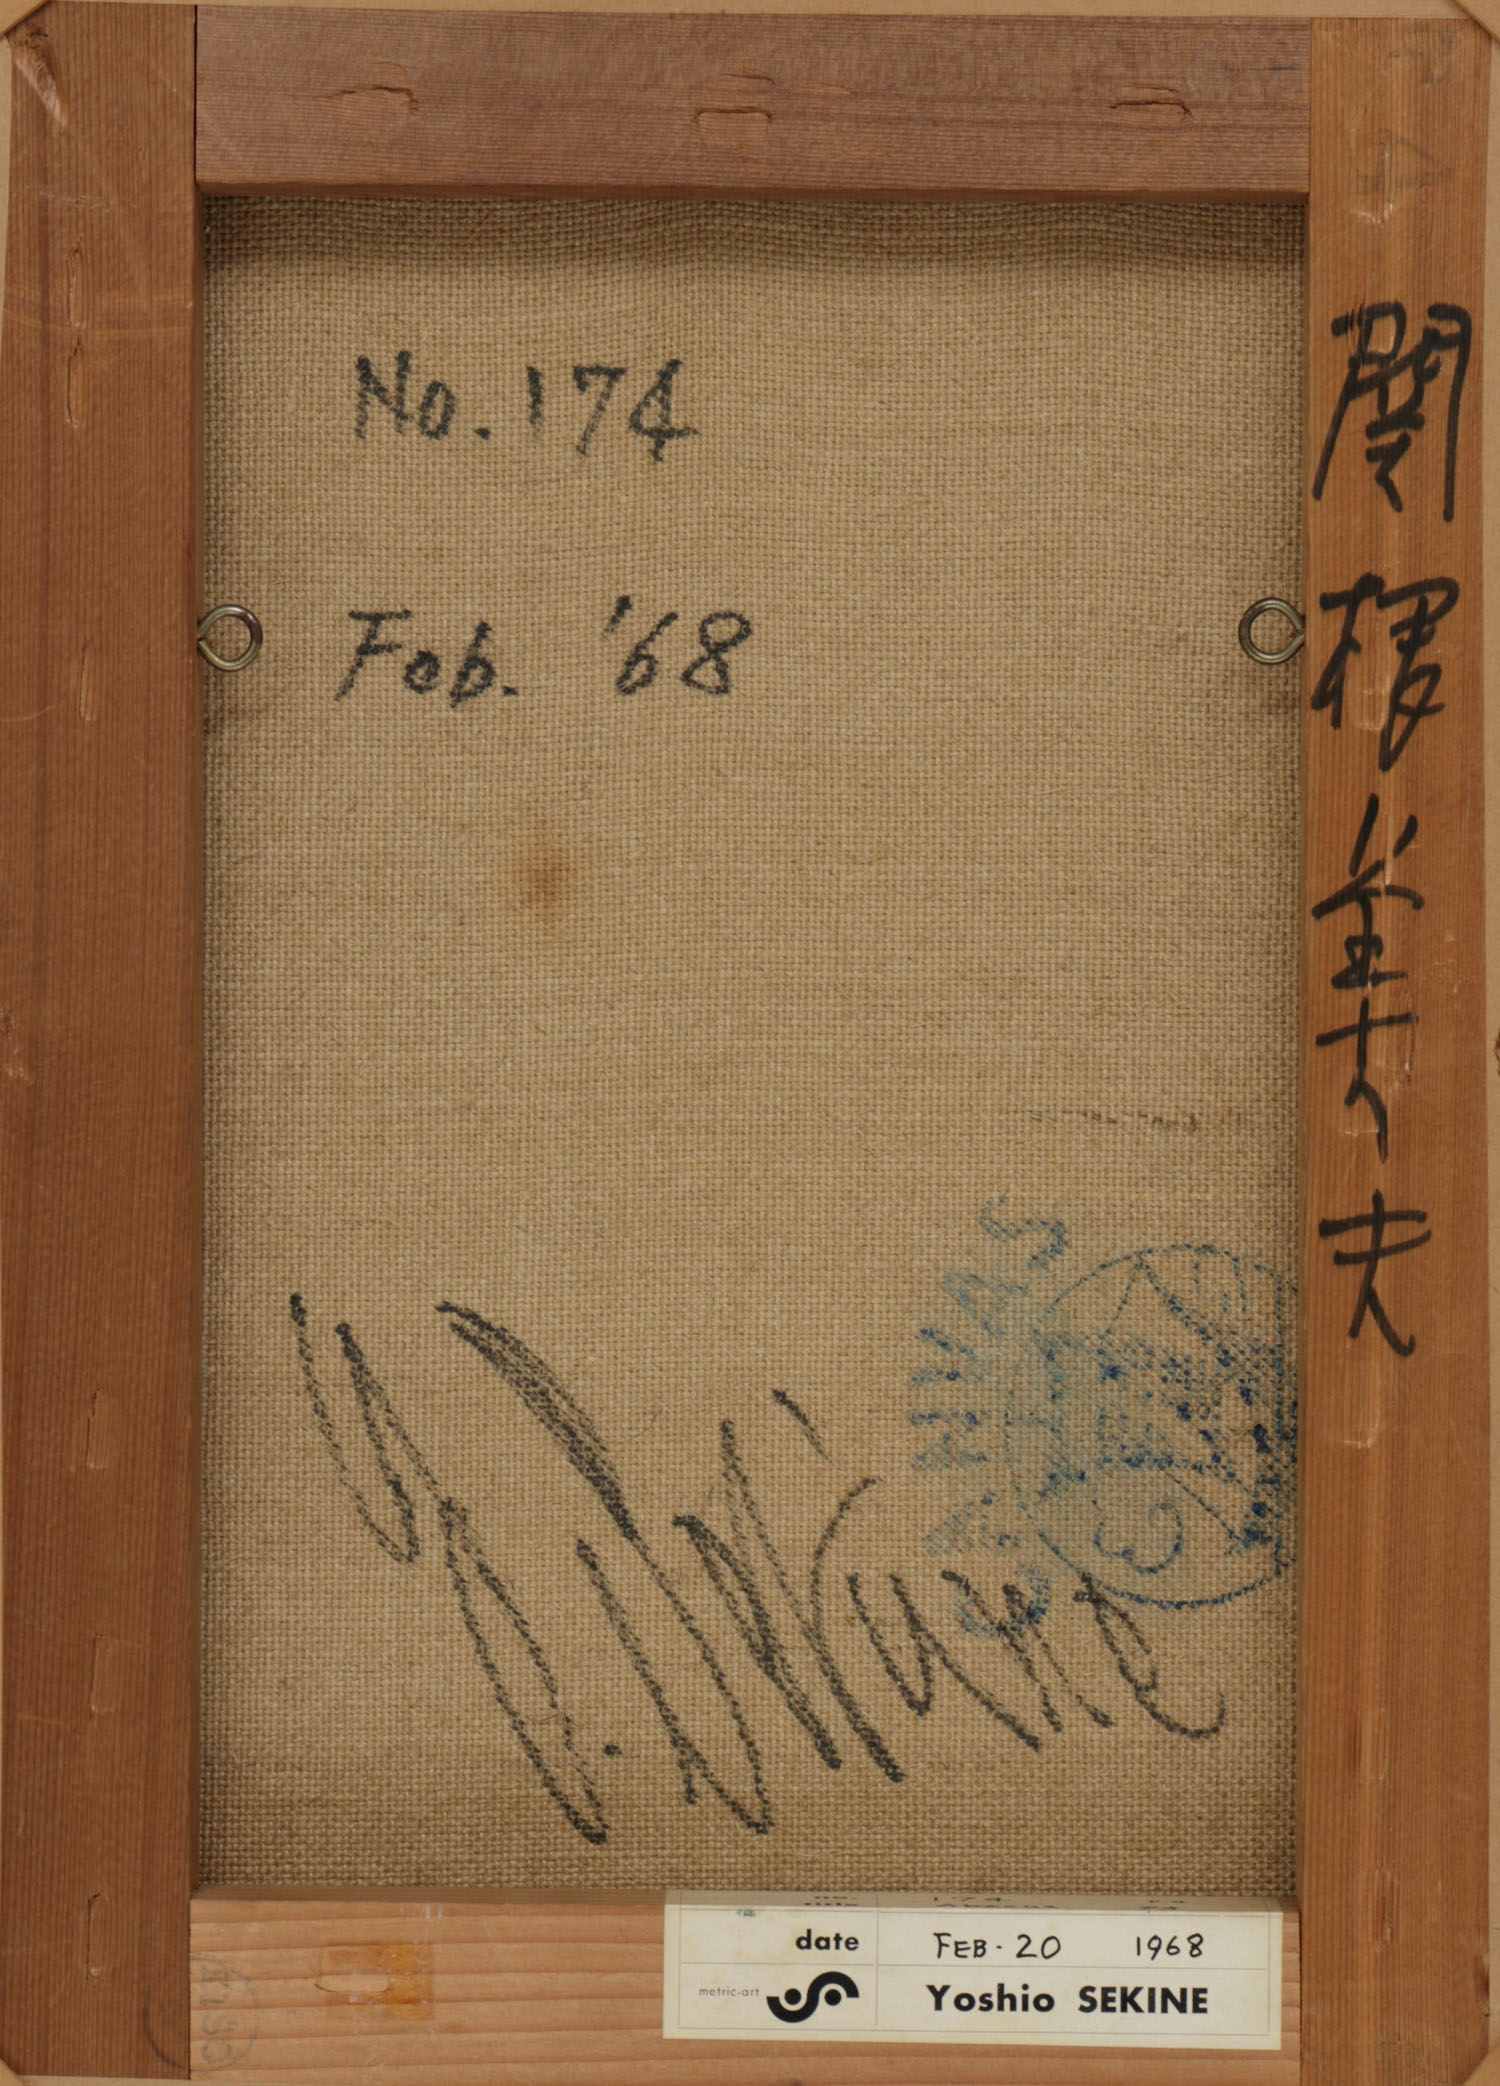 No. 174
Feb. '68
Y. Sekine
CANVAS
no. 174
date FEB - 20 1968
metric-art Yoshio SEKINE
関根美夫